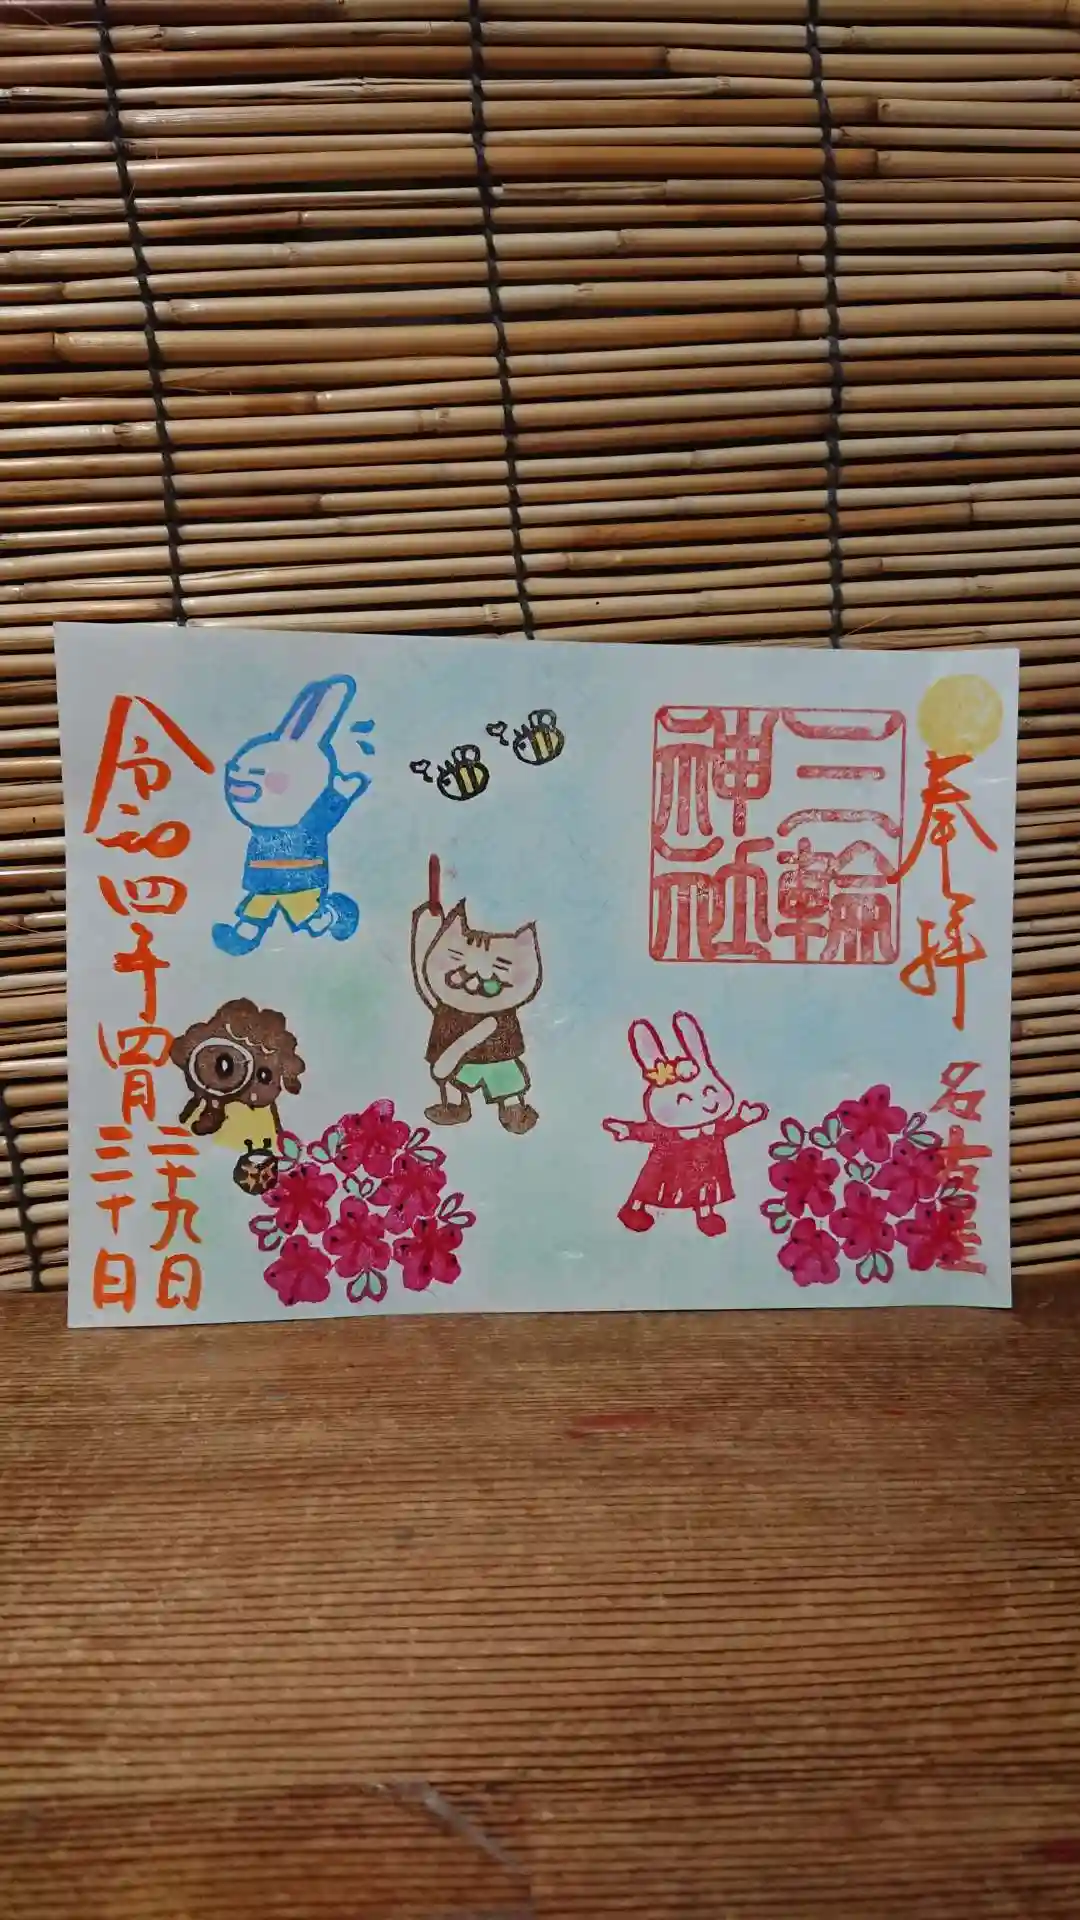 奉拝
名古屋
三輪
神社
令和四年四月
二十九日
三十日